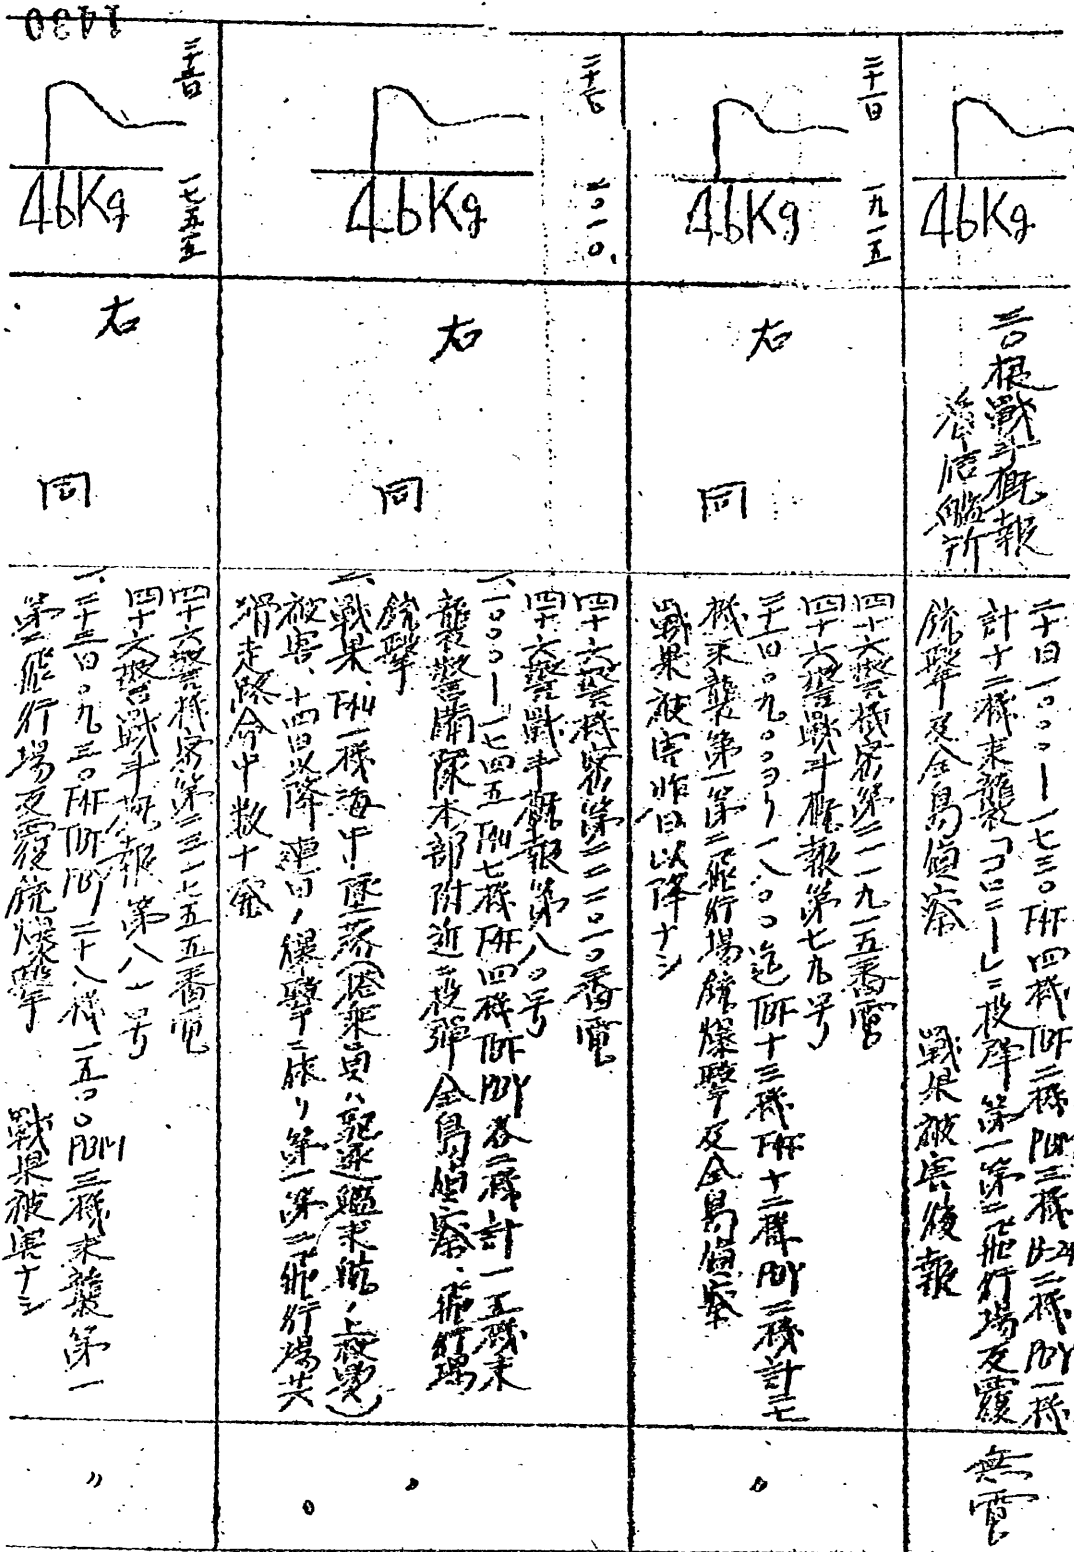 46Kg
三〇根戰斗概報
済 信艦所
二十日一〇〇〇—一七三〇F4F四機TBF二機PBM三機B-24二機PBY一機
計十二機来襲「コロニー」ニ投弾第一第二飛行場反覆
銃撃及全島偵察 戰果被害後報
無電
二十一日 一九一五
46Kg
右 同
四十六警機密第二一一九一五番電
四十六警戰斗概報第七九号
二十一日〇九〇〇ヨリ一八〇〇迄TBF十三機F4F十二機PBY二機計二七
機来襲第一第二飛行場銃爆撃及全島偵察
戰果被害昨日以降ナシ
〃
二〇一〇
46Kg
右 同
四十六警機密第二二二〇一〇番電
四十六警戰斗概報第八〇号
一、一〇〇〇—一七四五F4U七機F4F四機TBF PBY各二機計一五機来
襲警備隊本部附近ニ投弾全島偵察、飛行場
銃撃
二、戰果、F4U一機海中ニ墜落(搭乗員ハ駆逐艦来航ノ上救助)
被害、十四日以降連日ノ爆撃ニ依リ第一第二飛行場共
滑走路命中数十発
〃
二十三日 一七五五
46Kg
右 同
四十六警機密第二三一七五五番電
四十六警戰斗概報第八一号
一、二十三日〇九三〇F4F TBF PBY二十八機一五〇〇PBM三機来襲第一
第二飛行場反覆銃爆撃 戰果被害ナシ
〃